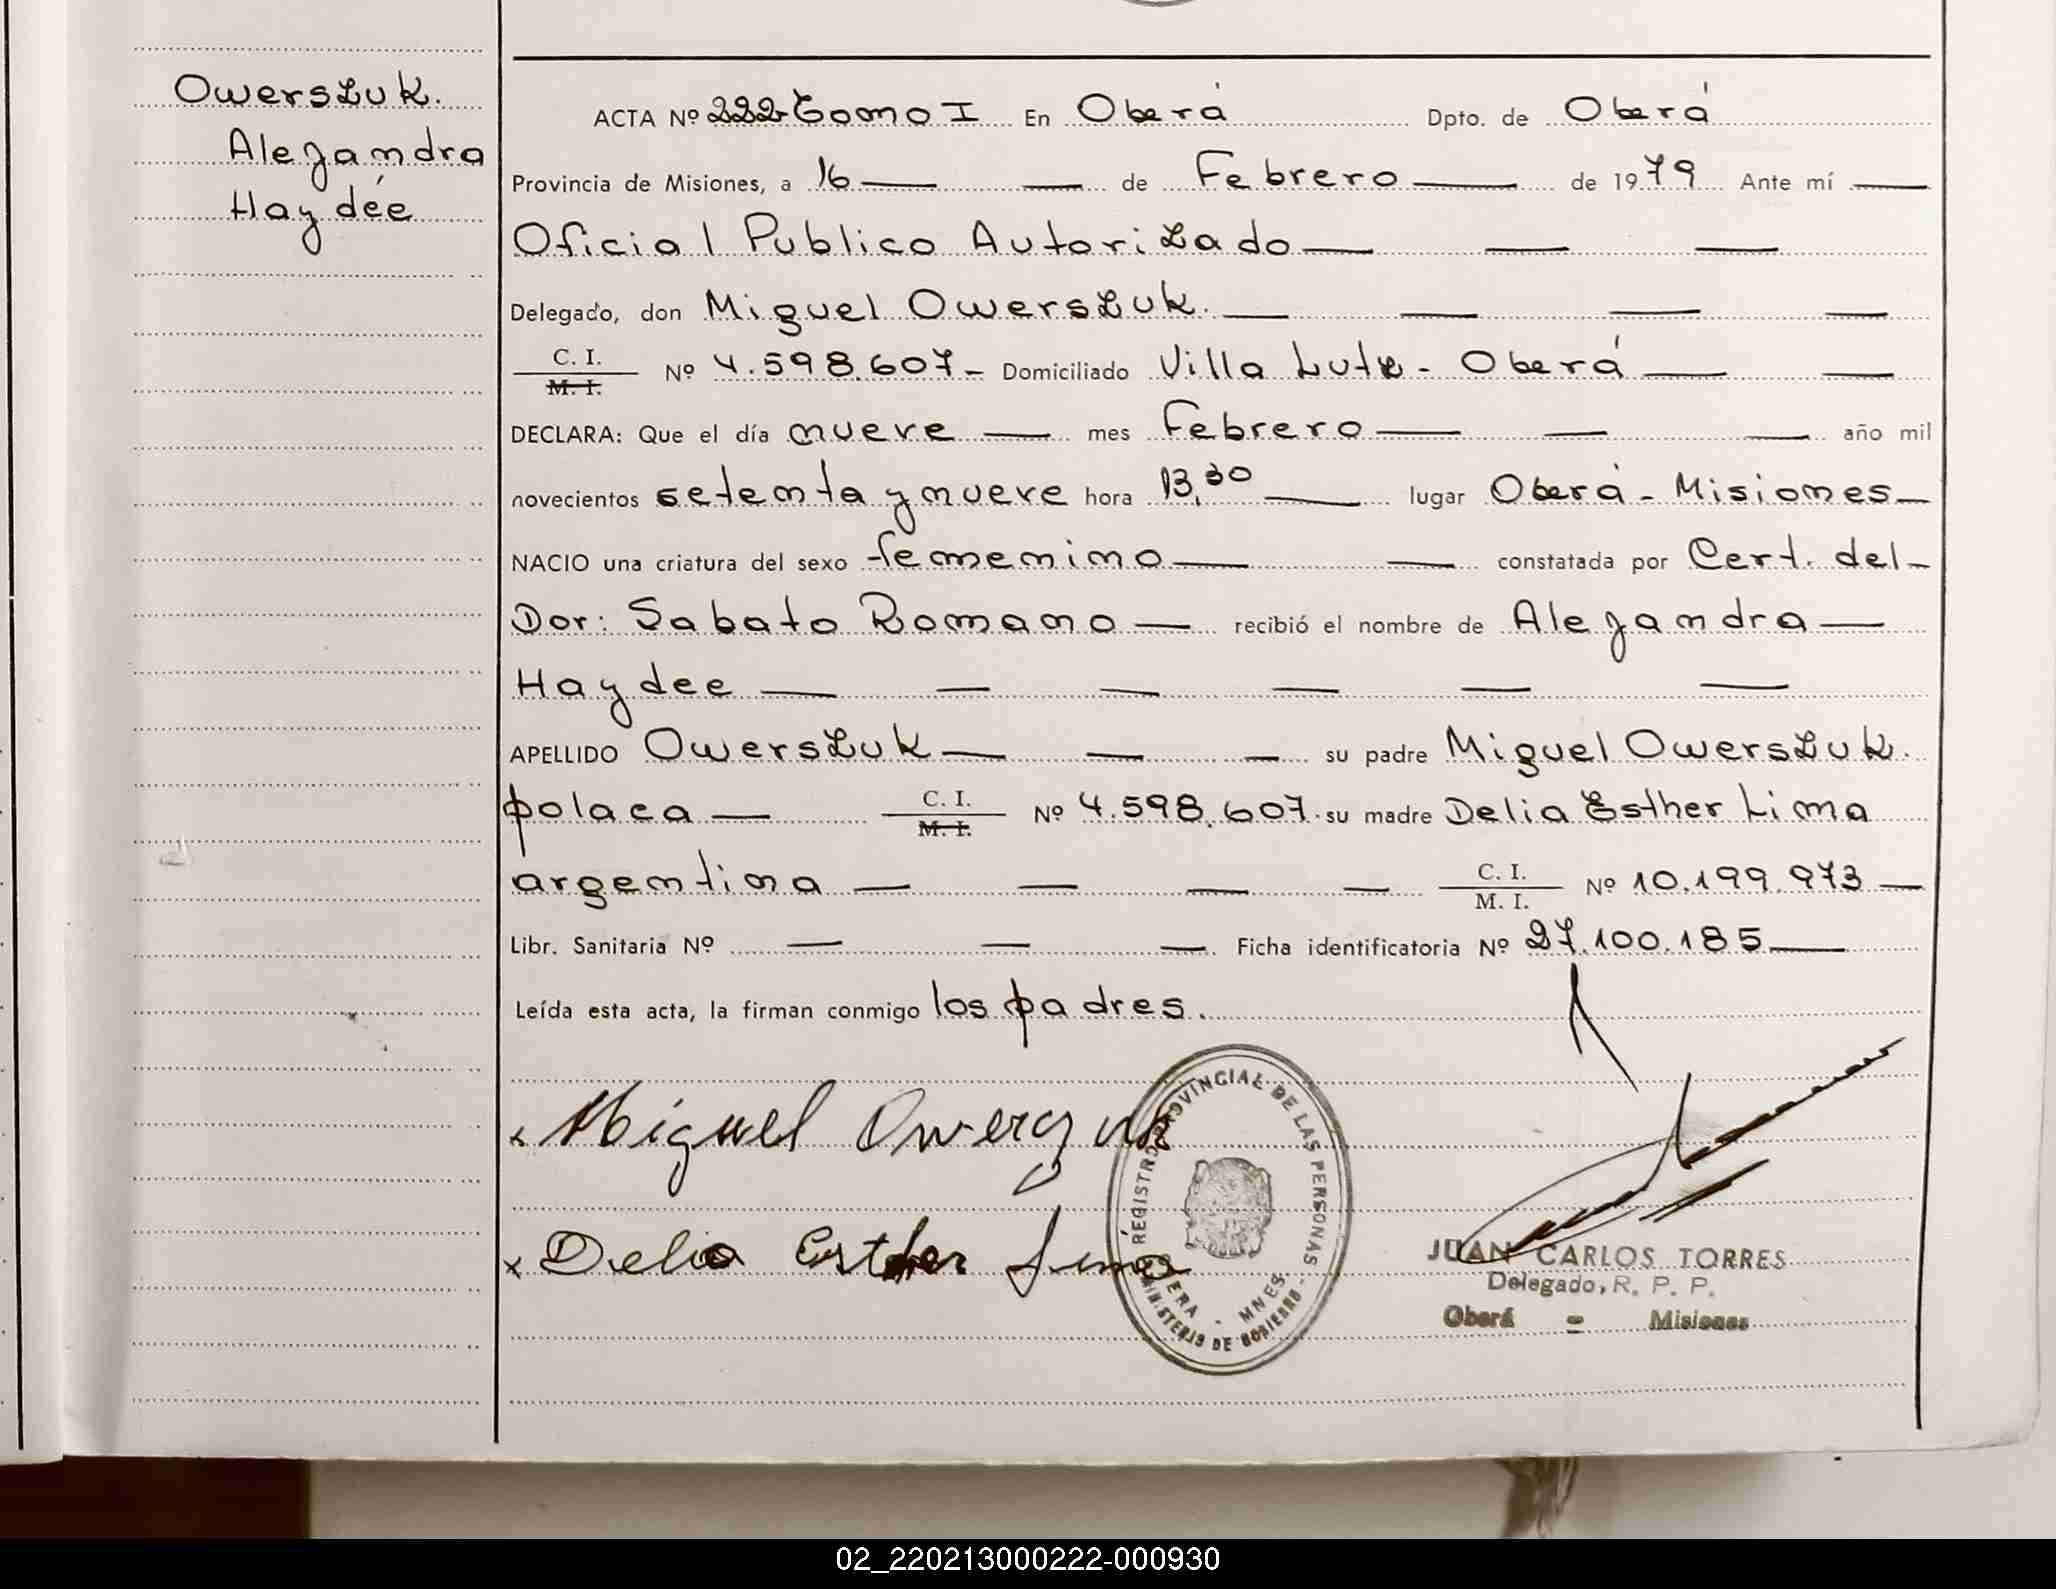 Owerszuk.
Alejandra
Haydée
ACTA Nº 222 Tomo I En Oberá Dpto. de Oberá
Provincia de Misiones, a 16 — — de Febrero — de 1979 Ante mí —
Oficial Publico Autorizado — — —
Delegado, don Miguel Owerszuk. — — — —
C. I. / M. I. Nº 4.598.607 - Domiciliado Villa Lutz - Oberá — —
DECLARA: Que el día nueve — mes Febrero — — — año mil
novecientos setenta y nueve hora 13,30 — lugar Oberá - Misiones —
NACIO una criatura del sexo femenino — — constatada por Cert. del -
Dor: Sabato Romano — recibió el nombre de Alejandra —
Haydee — — — — — —
APELLIDO Owerszuk — — — su padre Miguel Owerszuk.
polaca — C. I. / M. I. Nº 4.598.607. su madre Delia Esther Lima
argentina — — — — C. I. / M. I. Nº 10.199.973 —
Libr. Sanitaria Nº — — — Ficha identificatoria Nº 27.100.185 —
Leída esta acta, la firman conmigo los padres.
x Miguel Owerczuk
x Delia Esther Lima
REGISTRO PROVINCIAL DE LAS PERSONAS
OBERA - MNES
MINISTERIO DE GOBIERNO
JUAN CARLOS TORRES
Delegado, R. P. P.
Oberá - Misiones
02_220213000222-000930